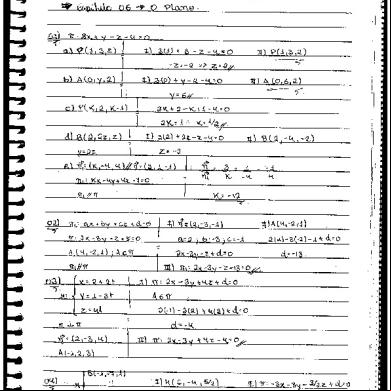 → Capítulo 06 → O Plano.
01) π: 3x+y-z-4=0
a) P(1,3,2) I) 3(1)+3-z-4=0 II) P(1,3,2)
-z=-2 => z=2//
b) A(0,y,2) I) 3(0)+y-2-4=0 II) A(0,6,2)
y=6//
c) P(k,2,k-1) 3k+2-k+1-4=0
2k=1 ∴ k=1/2//
d) B(2,y,z) I) 3(2)+2z-z-4=0 II) B(2,-4,-2)
y=2z z=-2
e) π1: (k,-4,4) // π: (3,1,-1)
π1: kx-4y+4z-1=0
π1 // π k=-12
02) π1: ax+by+cz+d=0 I) (2,-3,-1) II) A(4,-2,1)
π: 2x-3y-z+5=0 a=2, b=-3, c=-1 2(4)-3(-2)-1+d=0
A(4,-2,1), A∈π 2x-3y-z+d=0 d=-13
π1 // π III) π: 2x-3y-z-13=0//
03) x=2+2t I) π: 2x-3y+4z+d=0
r: y=1-3t A∈π
z=4t 2(-1)-3(2)+4(3)+d=0
r⊥π d=-4
(2,-3,4) II) π: 2x-3y+4z-4=0//
A(-1,2,3)
04)